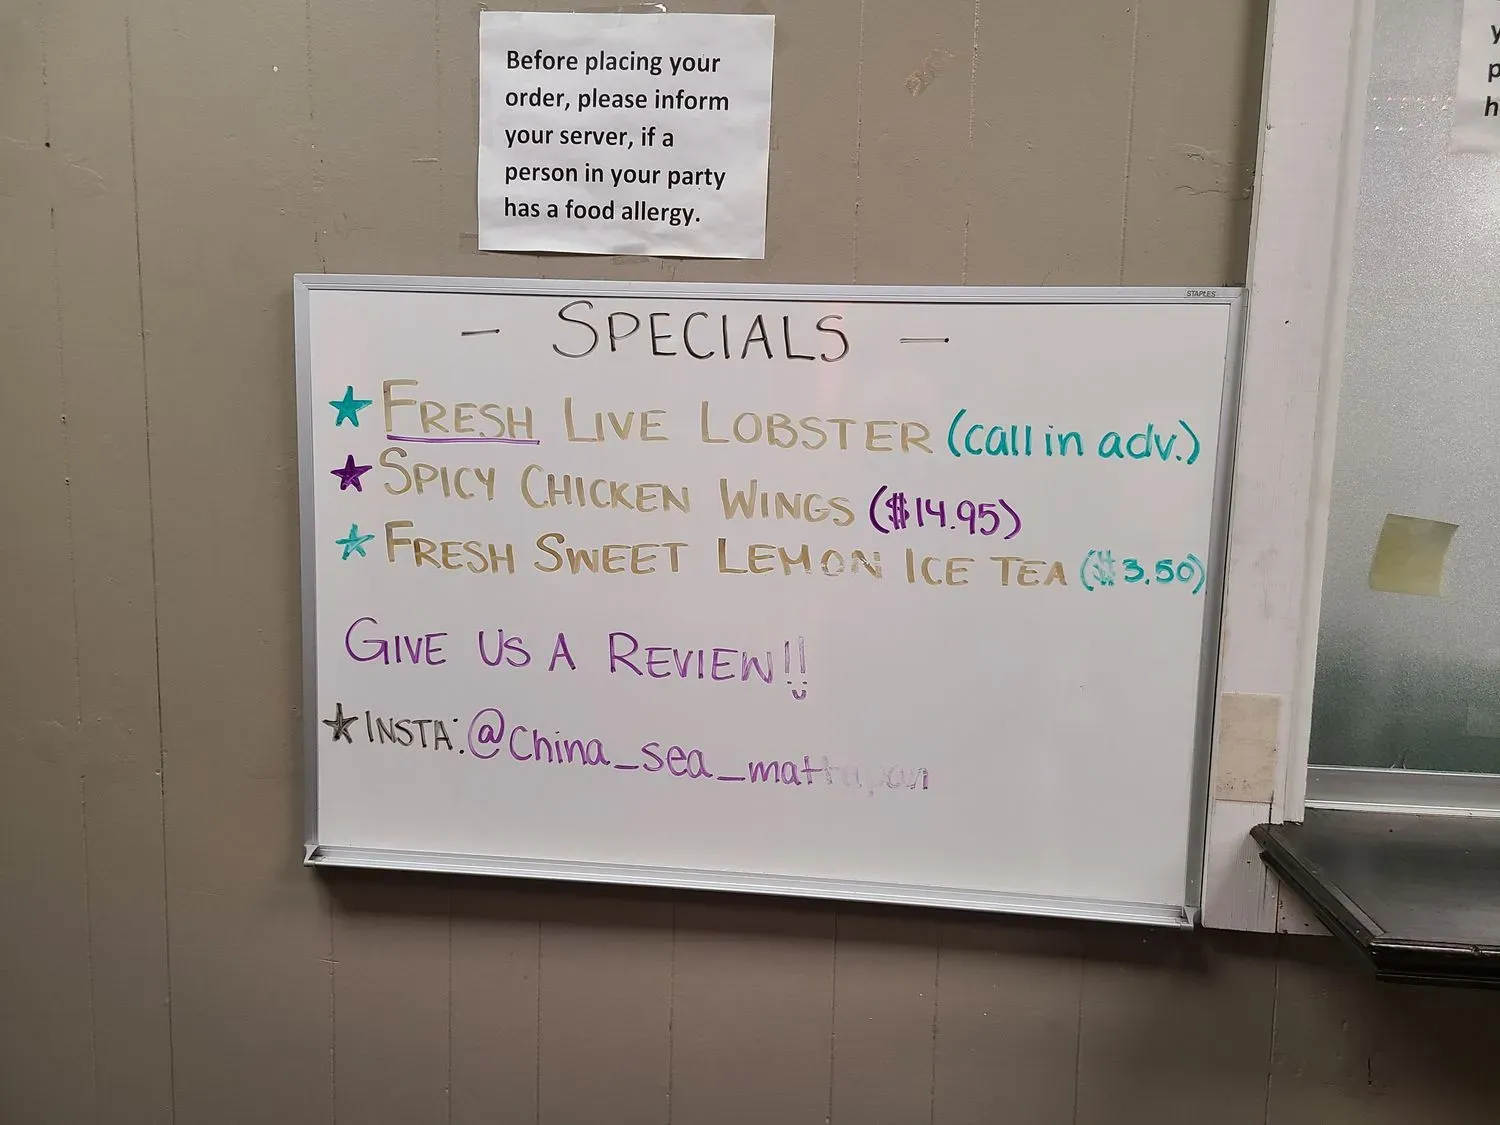 Before placing your
order, please inform
your server, if a
person in your party
has a food allergy.
STAPLES
- SPECIALS -
★ FRESH LIVE LOBSTER (call in adv.)
★ SPICY CHICKEN WINGS ($14.95)
★ FRESH SWEET LEMON ICE TEA ($3.50)
GIVE US A REVIEW!!
★ INSTA: @China_sea_mattapan
y
p
h